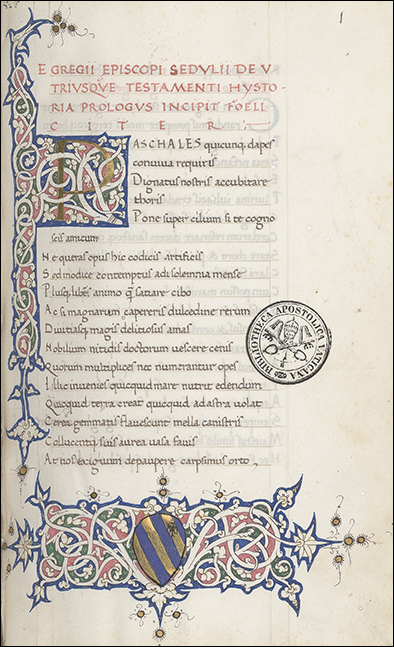 1
EGREGII EPISCOPI SEDVLII DE V
TRIVSQVE TESTAMENTI HYSTO
RIA PROLOGUS INCIPIT FOELI
CITER.
PASCHALES quicunq, dapes
conuiua requiris
Dignatus nostris accubitare
thoris
Pone super cilium si te cogno
scis amicum
Ne queras opus hic codicis artificis
Sed modice contemptus adi solemnia mense
Plusq, libens animo q̄ satiare cibo
Ac si magnarum capereris dulcedine rerum
Diuitiasq, magis delitiosus amas
Nobilium nitidis doctorum uescere cenis
Quorum multiplices nec numerantur opes
Illic inuenies quicquid mare nutrit edendum
Quicquid terra creat quicquid ad astra uolat
Cerea gemmatis flauescunt mella canistris
Collucentq, suis aurea uasa fauis
At nos exiguum de paupere carpsimus orto
BIBLIOTHECA APOSTOLICA VATICANA